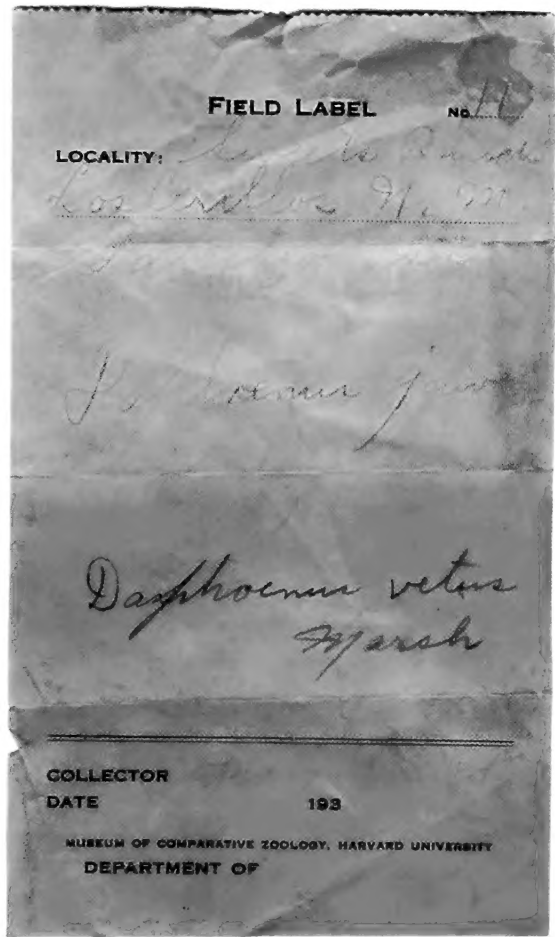 FIELD LABEL No. 11
LOCALITY:
Los Cerrillos N. M.
jaw
Daphoenus vetus
Marsh
COLLECTOR
DATE 193
MUSEUM OF COMPARATIVE ZOOLOGY, HARVARD UNIVERSITY
DEPARTMENT OF